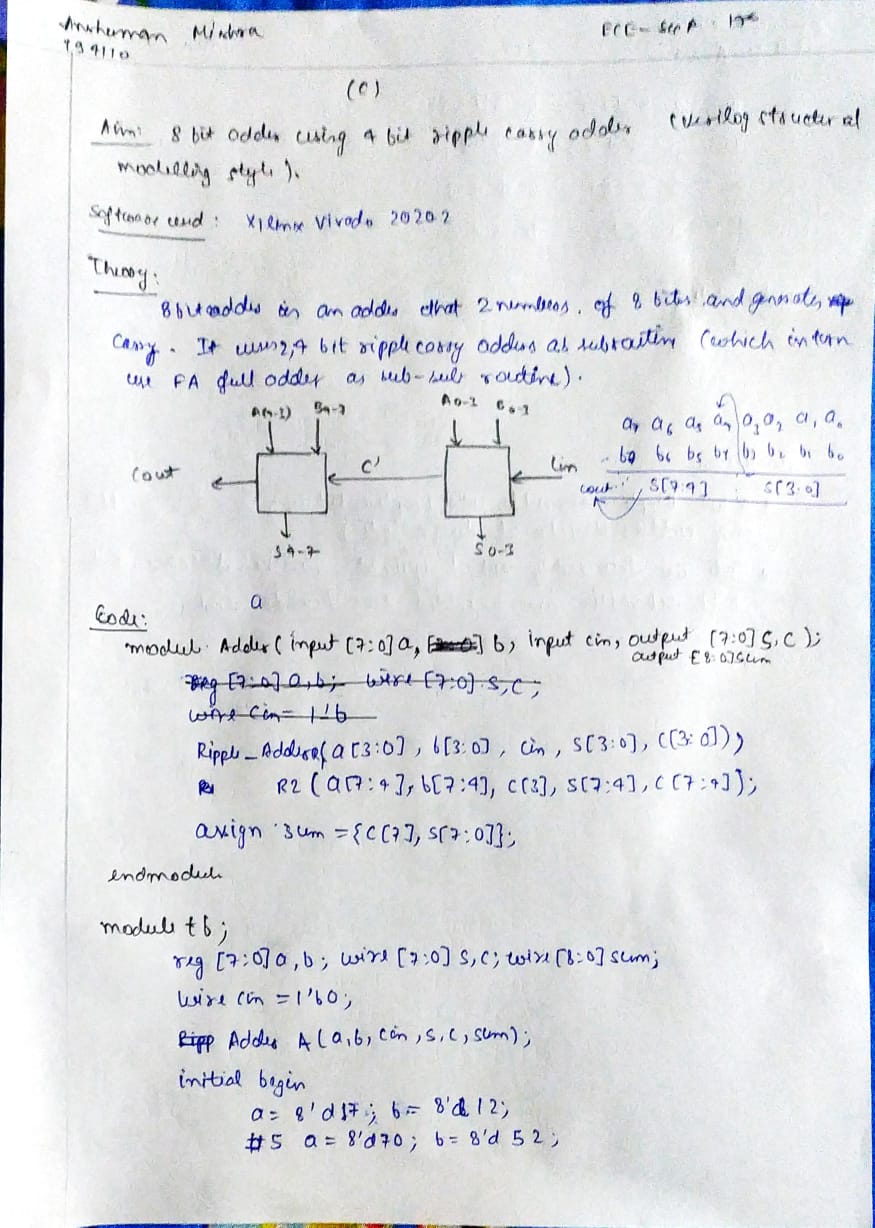 Ansherman Mishra
194110
ECE - Sec A
(C)
Aim: 8 bit adder using 4 bit ripple carry adder (verilog structural
modelling style).
Software used: Xilinx Vivado 2020.2
Theory:
8 bit adder is an adder that 2 numbers. of 8 bits and generates
carry. It uses 2, 4 bit ripple carry adders as subroutine (which in turn
use FA full adder as sub-sub routine).
A(4-7) B4-7 A0-3 B0-3
a7 a6 a5 a4 a3 a2 a1 a0
b7 b6 b5 b4 b3 b2 b1 b0
Cout C' Cin
cout S[7:4] S[3:0]
S4-7 S0-3
a
Code:
module Adder (input [7:0] a, b, input cin, output [7:0] S, C);
output [8:0] sum
reg [7:0] a,b; wire [7:0] S,C;
wire cin = 1'b
Ripple_Adder (a[3:0], b[3:0], cin, s[3:0], c[3:0]),
R2 (a[7:4], b[7:4], c[3], s[7:4], c[7:4]);
assign sum = {c[7], s[7:0]};
endmodule
module tb;
reg [7:0] a,b; wire [7:0] s,c; wire [8:0] sum;
wire cin = 1'b0;
Ripp Adder A (a,b,cin,s,c,sum);
initial begin
a = 8'd17; b = 8'd12;
#5 a = 8'd70; b = 8'd 52;